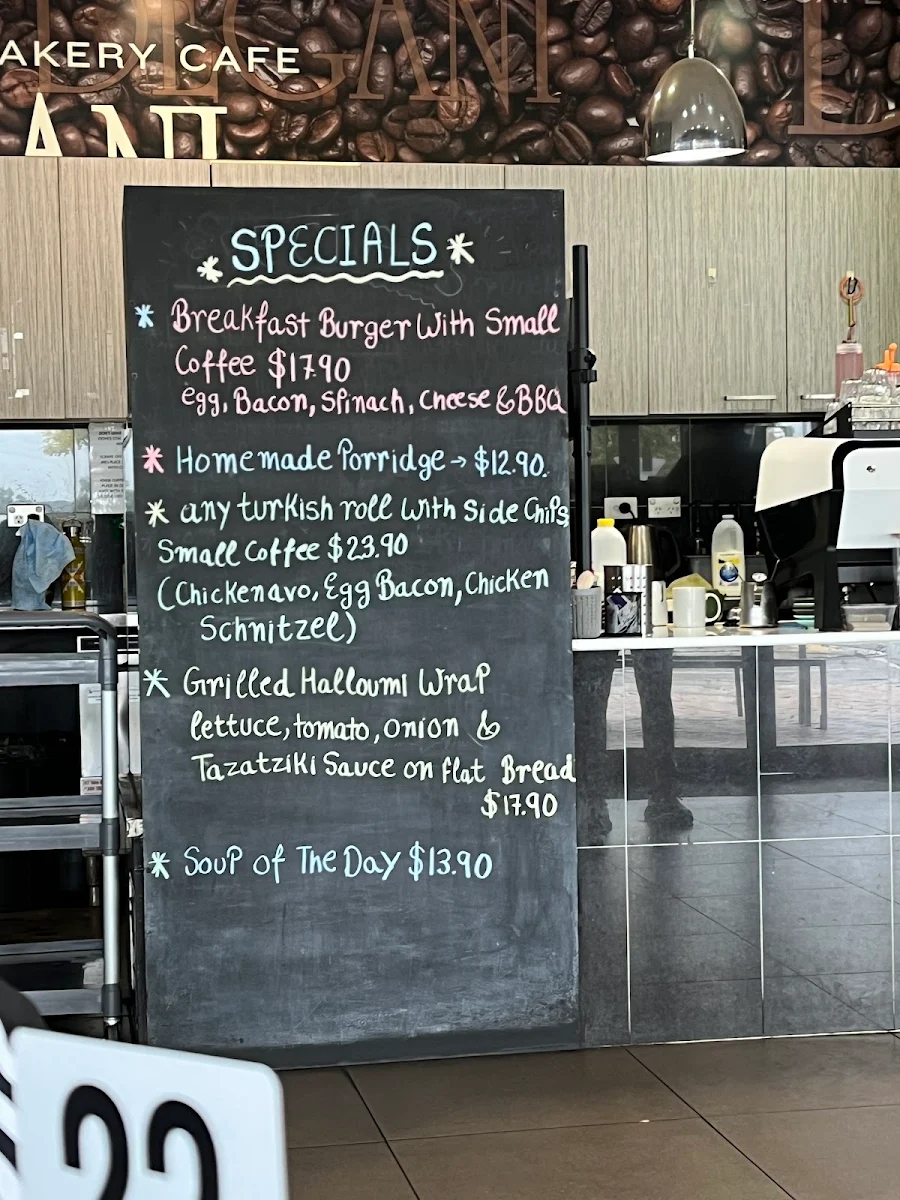 DEGANI
AKERY CAFE
ANI
SPECIALS
Breakfast Burger With Small
Coffee $17.90
egg, Bacon, Spinach, Cheese & BBQ
Homemade Porridge → $12.90.
any turkish roll with Side Chips
Small Coffee $23.90
(Chickenavo, Egg Bacon, Chicken
Schnitzel)
Grilled Halloumi Wrap
lettuce, tomato, onion &
Tazatziki Sauce on flat Bread
$17.90
Soup of The Day $13.90
22